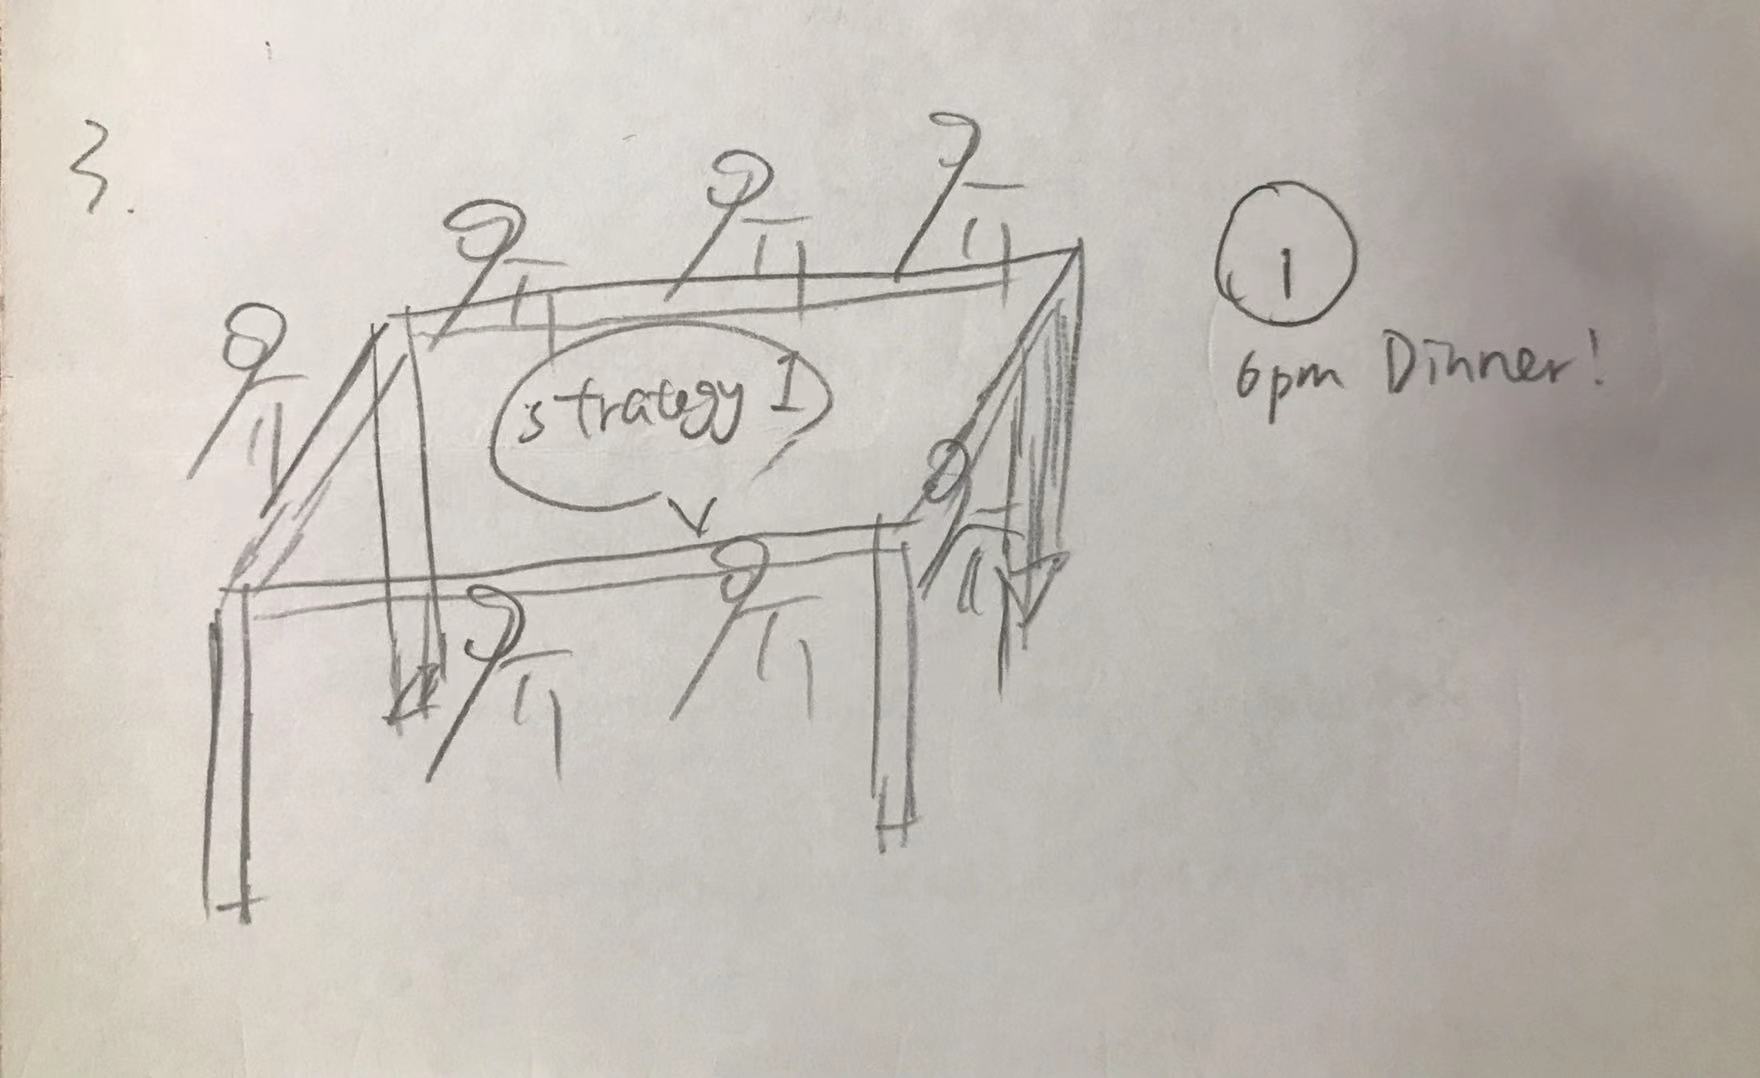 3.
strategy I
1
6pm Dinner!